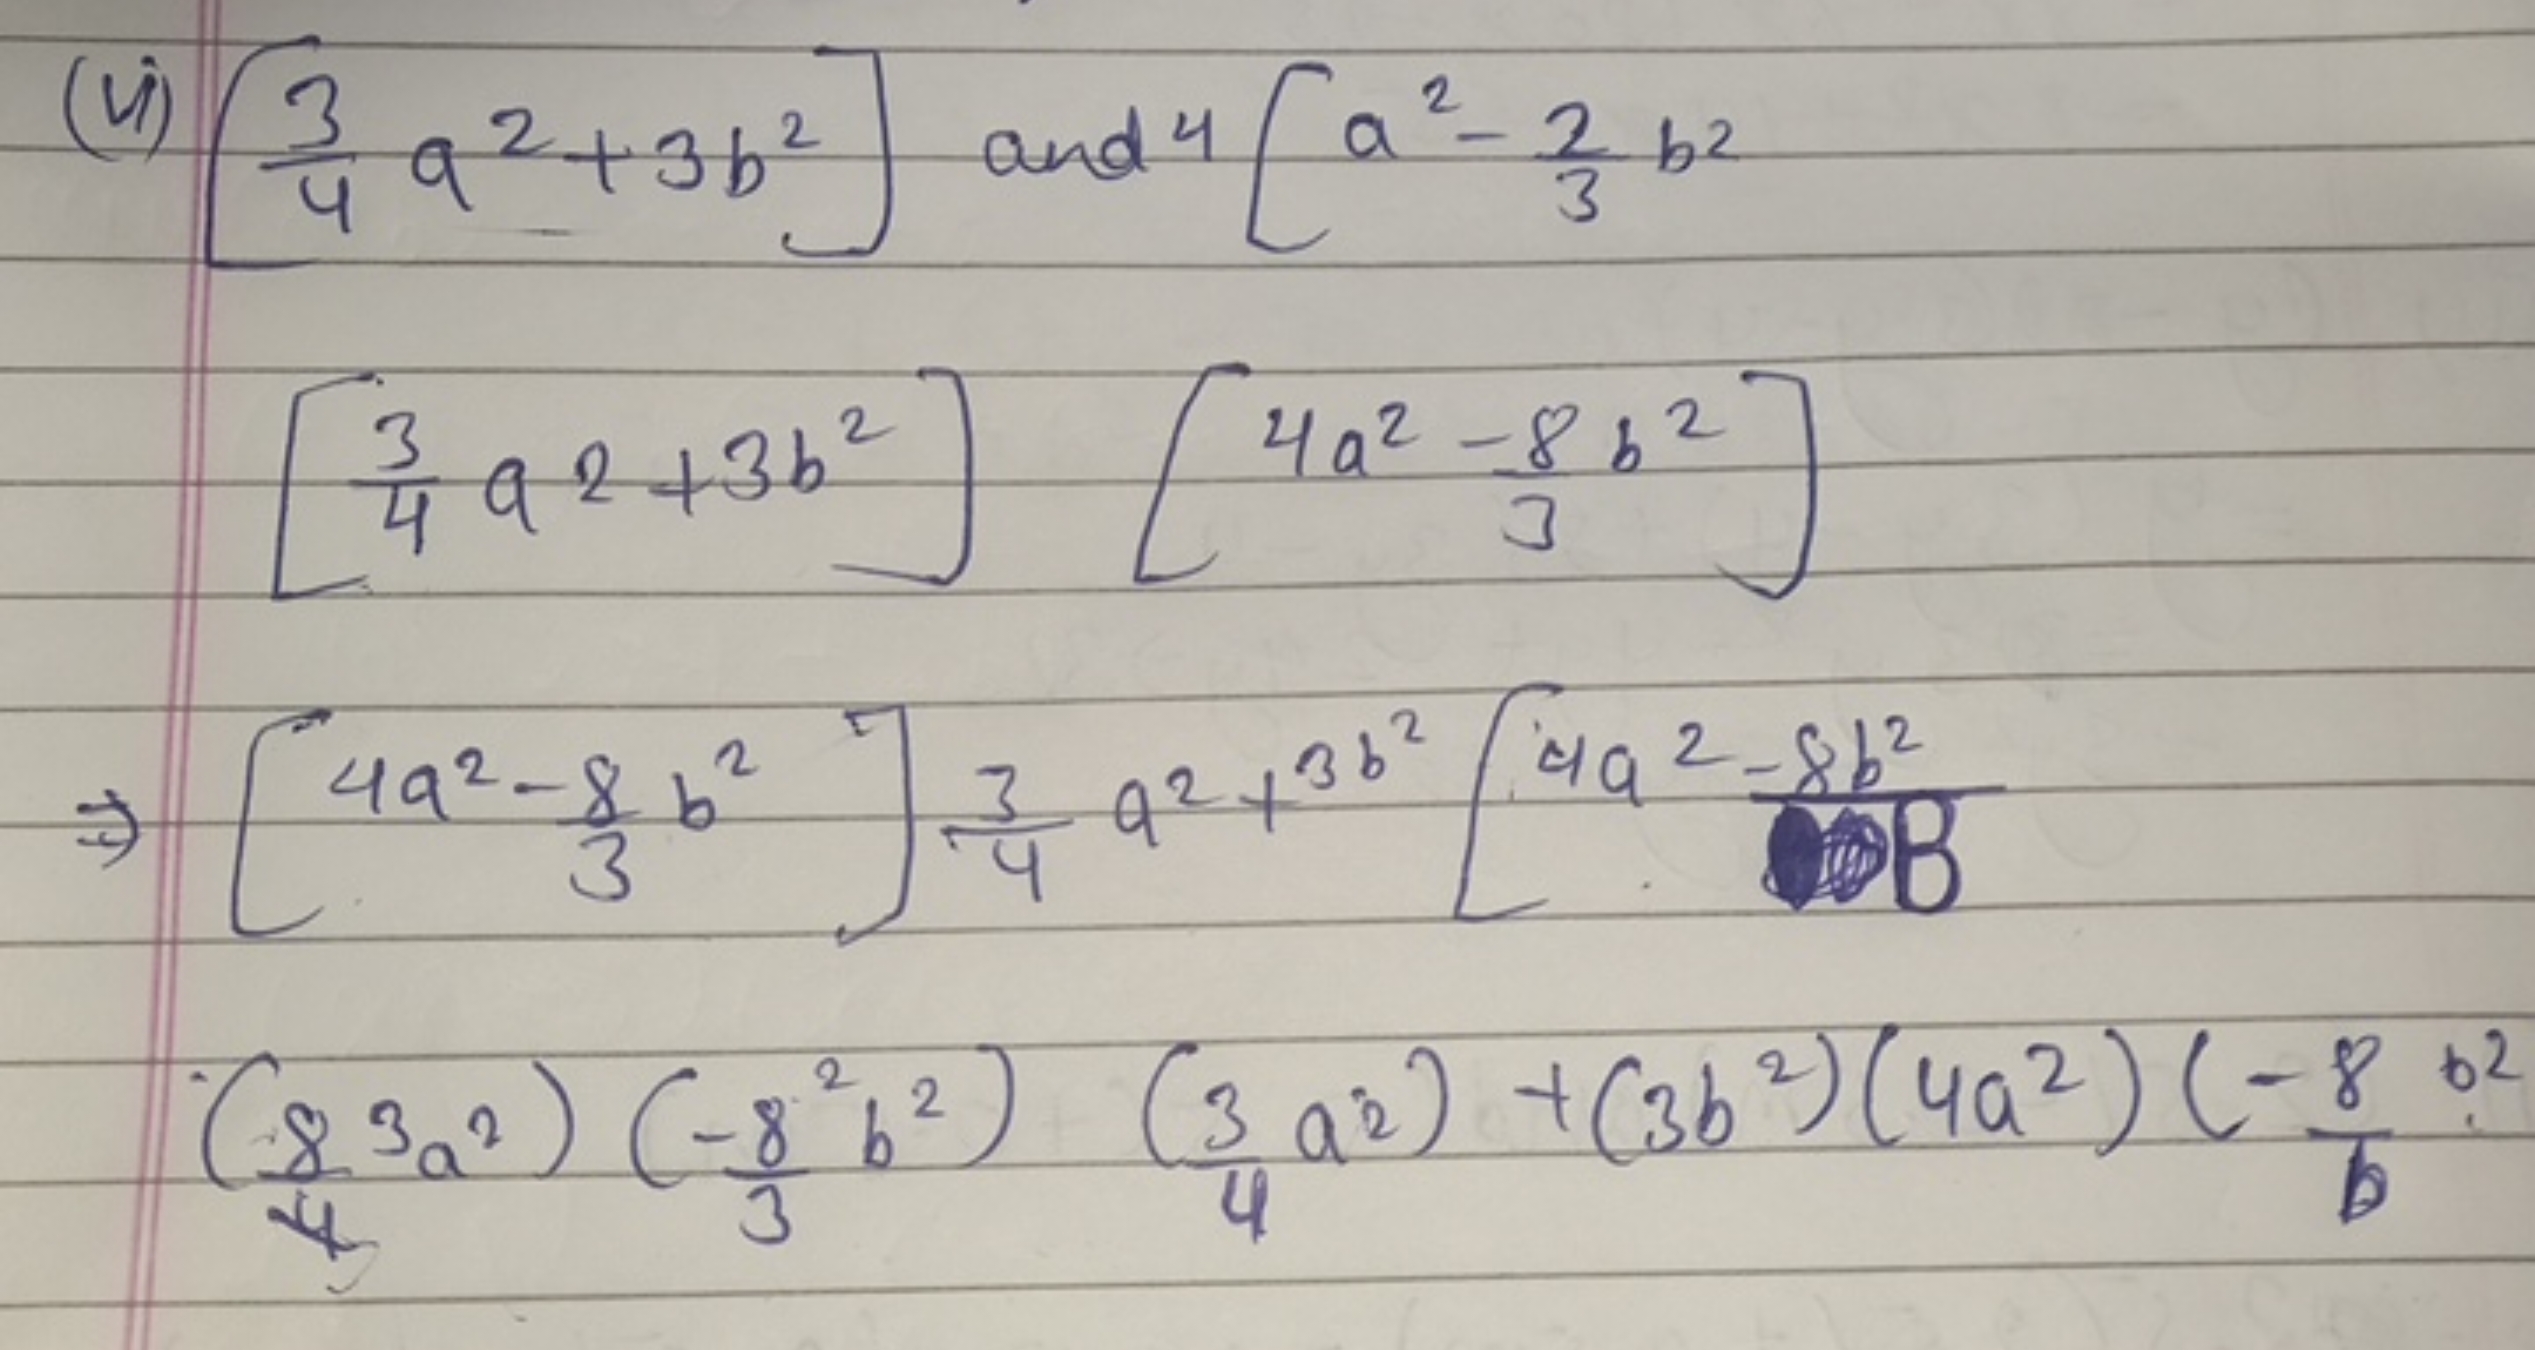 (vi) [3/4 a² + 3b²] and 4 [a² - 2/3 b²
[3/4 a 2 + 3b²] [4a² - 8/3 b²]
⇒ [4a² - 8/3 b²] 3/4 a² + 3b² [4a² - 8b²/B
(8/4 3a²) (-8/3 ² b²) (3/4 a²) + (3b²) (4a²) (-8/b b²